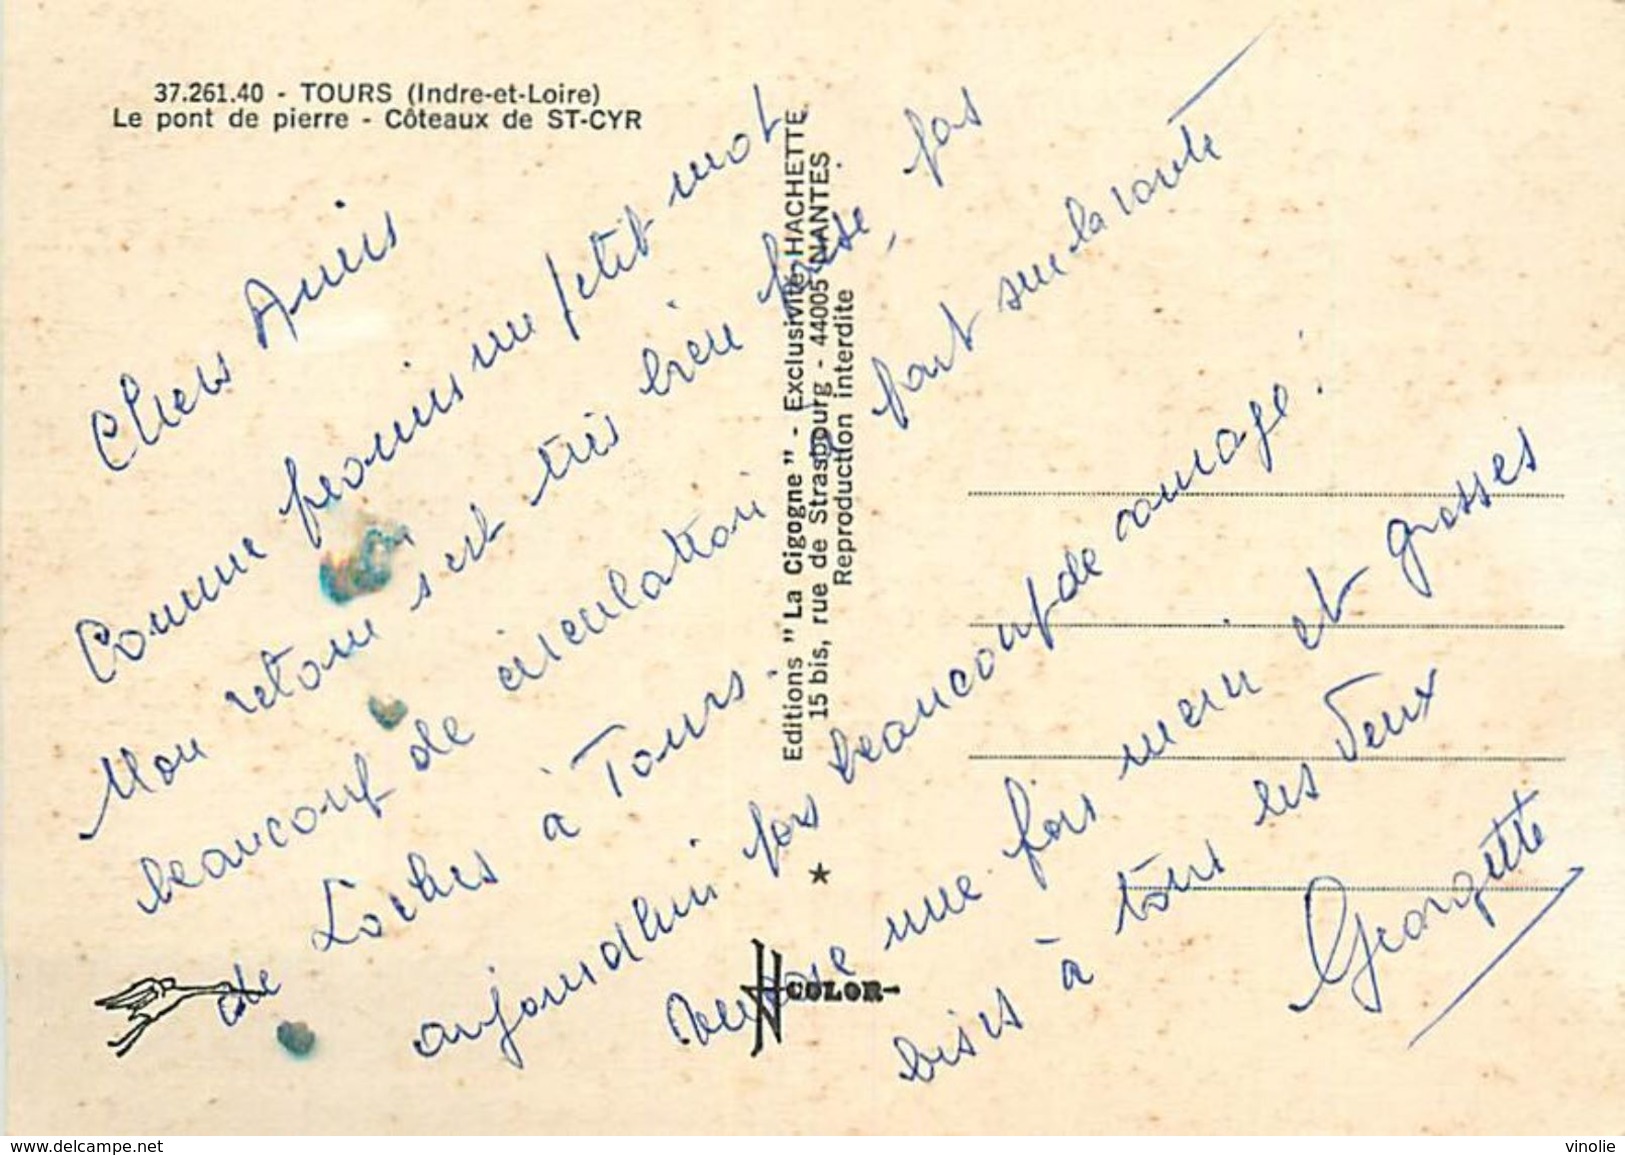 37.261.40 - TOURS (Indre-et-Loire)
Le pont de pierre - Côteaux de ST-CYR
Chers Amis
Comme promis un petit mot.
Mon retour s'est très bien passé, pas
beaucoup de circulation, part sur la route
de Loches à Tours.
aujourd'hui pas beaucoup de courage!
une fois merci et grosses
bises à tous les Deux
Georgette
Editions "La Cigogne" - Exclusivité HACHETTE
15 bis, rue de Strasbourg - 44005 NANTES
Reproduction interdite
COLOR
www.delcampe.net
vinolie